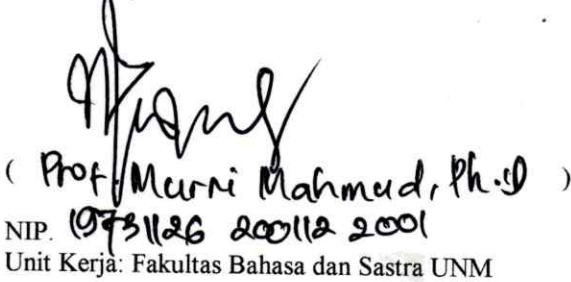 ( Prof. Murni Mahmud, Ph.D )
NIP. 19731126 200112 2001
Unit Kerja: Fakultas Bahasa dan Sastra UNM